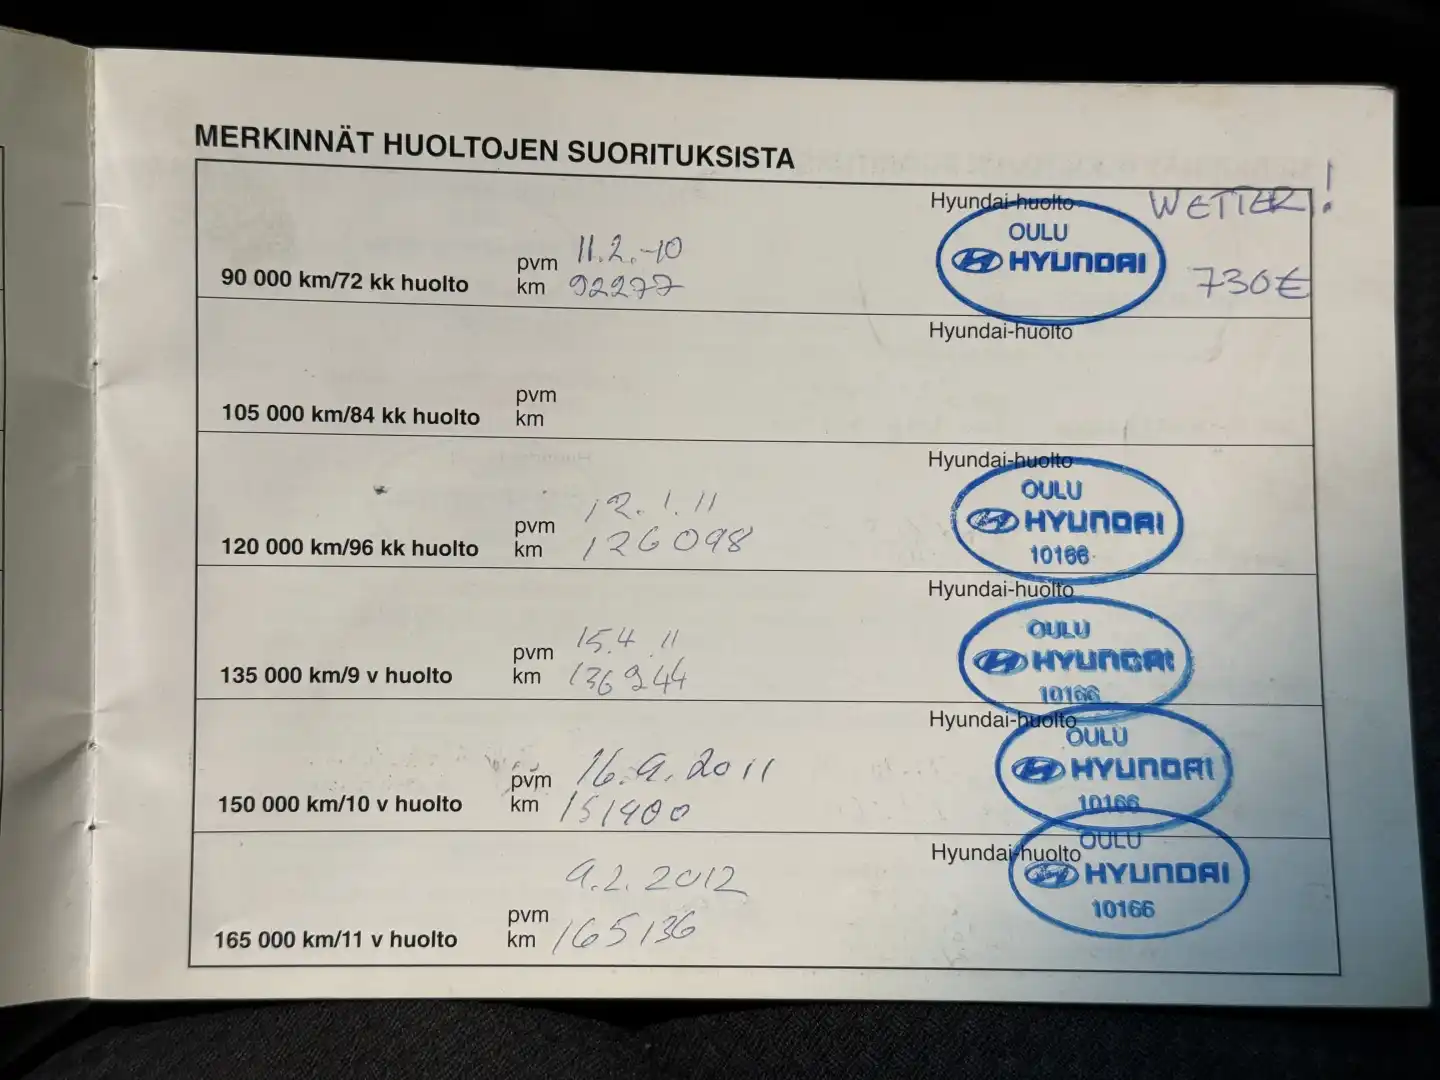 MERKINNÄT HUOLTOJEN SUORITUKSISTA
Hyundai-huolto WETTER!
OULU
HYUNDAI
730€
90 000 km/72 kk huolto
pvm 11.2.-10
km 92277
Hyundai-huolto
105 000 km/84 kk huolto
pvm
km
Hyundai-huolto
OULU
HYUNDAI
10166
120 000 km/96 kk huolto
pvm 12.1.11
km 126098
Hyundai-huolto
OULU
HYUNDAI
10166
135 000 km/9 v huolto
pvm 15.4 11
km 136944
Hyundai-huolto
OULU
HYUNDAI
10166
150 000 km/10 v huolto
pvm 16.9.2011
km 151400
Hyundai-huolto
OULU
HYUNDAI
10166
165 000 km/11 v huolto
pvm 9.2.2012
km 165136